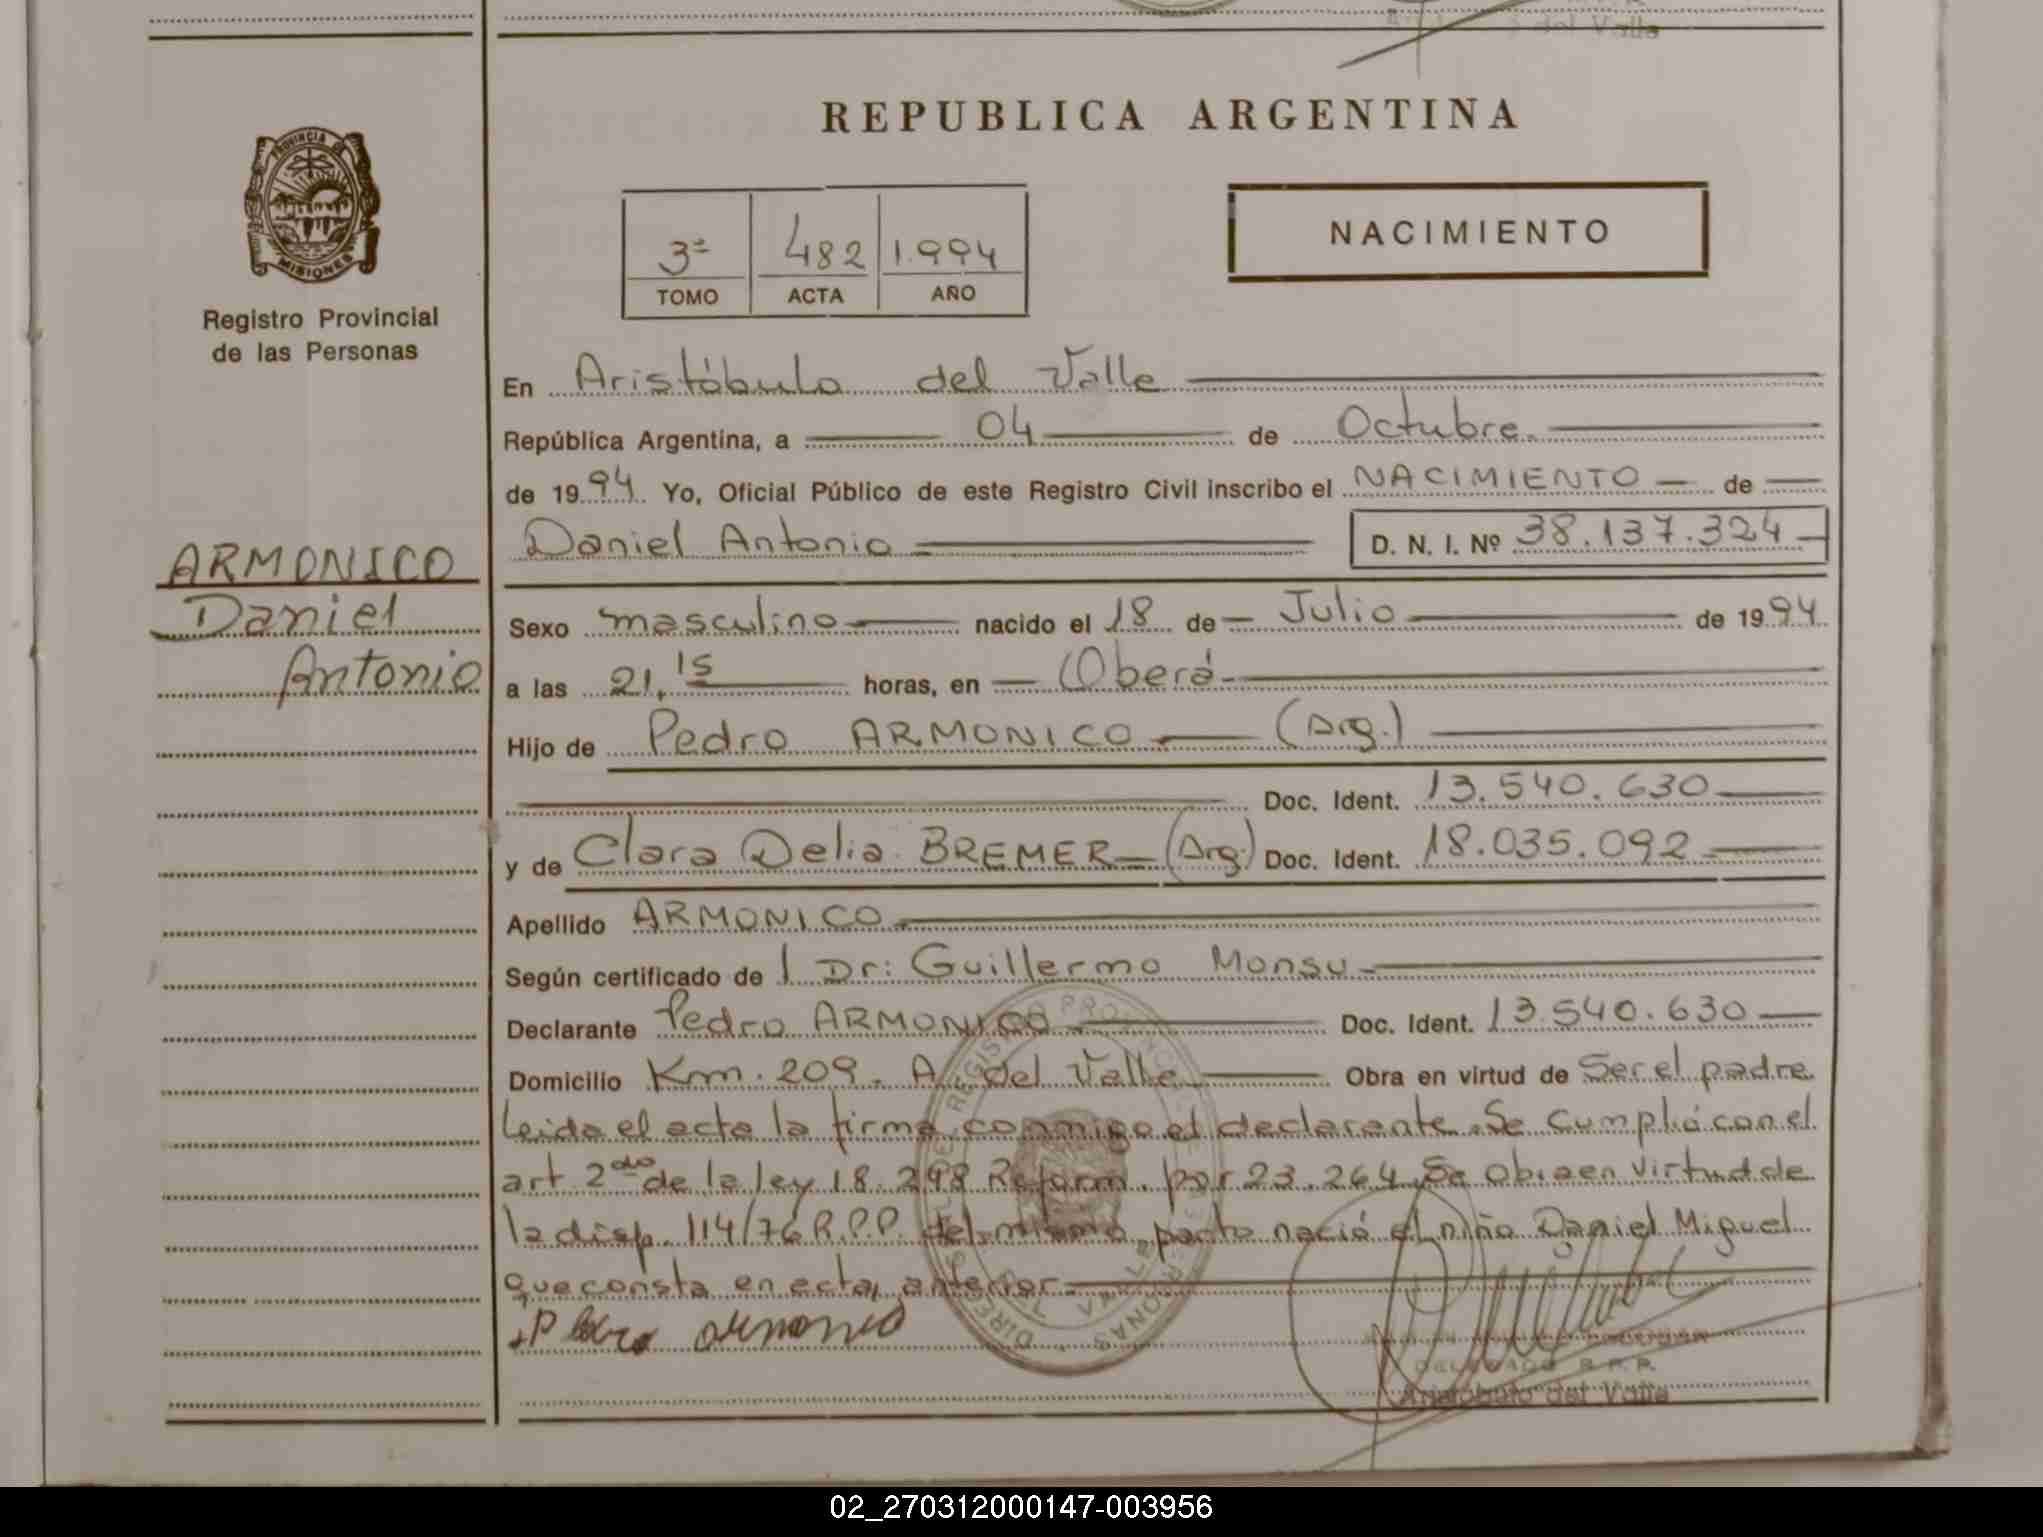 del Valle
PROVINCIA DE
MISIONES
Registro Provincial
de las Personas
ARMONICO
Daniel
Antonio
REPUBLICA ARGENTINA
3ª 482 1.994
TOMO ACTA AÑO
NACIMIENTO
En Aristóbulo del Valle
República Argentina, a 04 de Octubre.
de 1994 Yo, Oficial Público de este Registro Civil inscribo el NACIMIENTO de
Daniel Antonio D. N. I. Nº 38.137.324
Sexo masculino nacido el 18 de Julio de 1994
a las 21,15 horas, en Oberá
Hijo de Pedro ARMONICO (Arg.)
Doc. Ident. 13.540.630
y de Clara Delia BREMER (Arg.) Doc. Ident. 18.035.092
Apellido ARMONICO
Según certificado de l Dr: Guillermo Monsu
Declarante Pedro ARMONICO Doc. Ident. 13.540.630
Domicilio Km. 209. A. del Valle Obra en virtud de Ser el padre
Leida el acta la firma conmigo el declarante. Se cumplió con el
art. 2do de la ley 18.248 Reform. por 23.264. Se obra en virtud de
la disp. 114/76 R.P.P. del mismo parto nació el niño Daniel Miguel
que consta en acta anterior.
DELEGADO R.P.P.
Aristóbulo del Valle
02_270312000147-003956